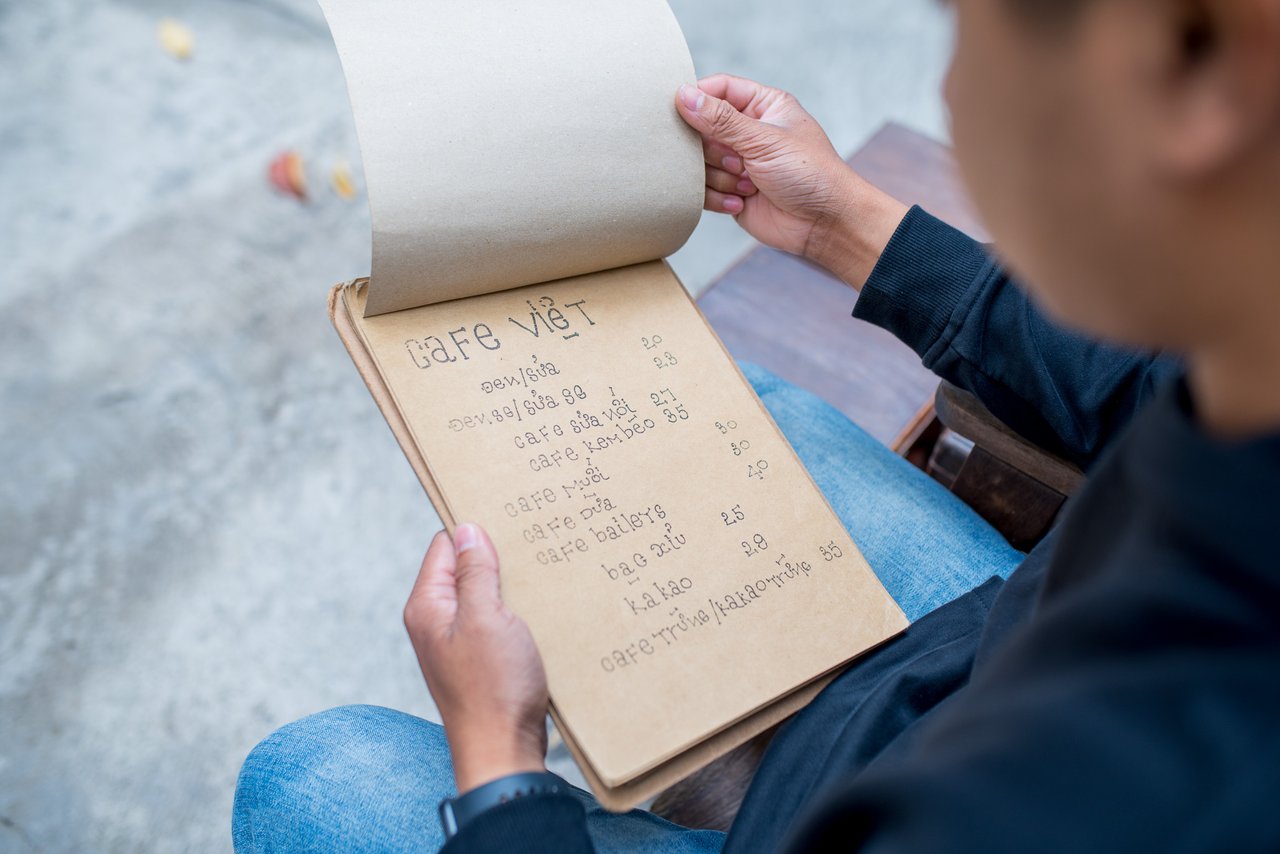 CAFE VIỆT
ĐEN/SỮA 20
ĐEN.SG/SỮA SG 23
CAFE SỮA NÓI 27
CAFE KEM BÉO 35
CAFE MUỐI 30
CAFE DỪA 30
CAFE BAILEYS 40
BẠC XỈU 25
KAKAO 28
CAFE TRỨNG/KAKAO TRỨNG 35